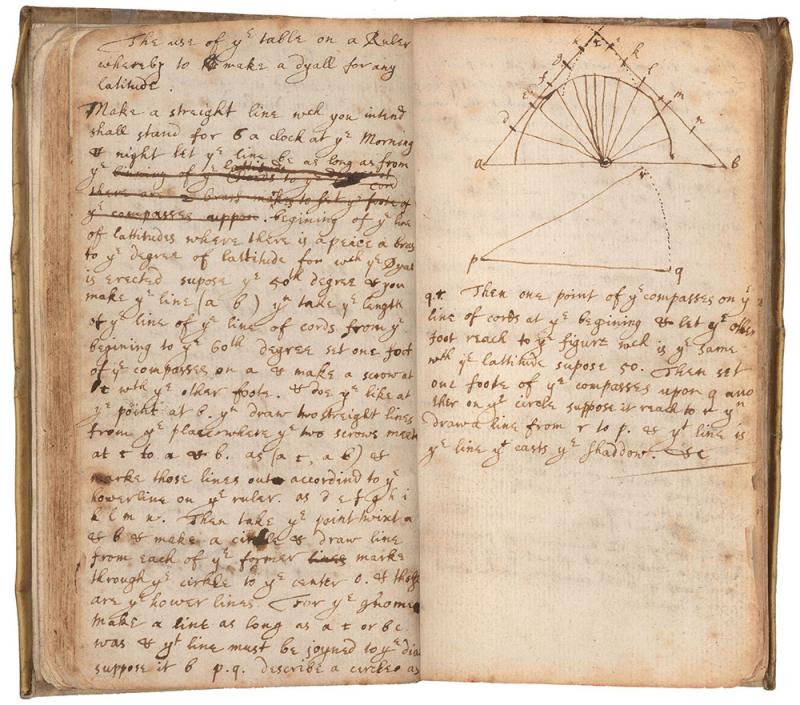 The use of yᵉ table on a Ruler
whereby to make a dyall for any
latitude.
Make a straight line wch you intend
shall stand for 6 a clock at yᵉ Morning
& night let yᵉ line be as long as from
yᵉ
cord
there are 2 brass to set yᵉ foote of
yᵉ compasses uppon. begining of yᵉ line
of lattitudes where there is a peice a brass
to yᵉ degree of lattitude for wᶜh yᵉ Dyal
is erected supose yᵉ 50th degree & you
make yᵉ line (a b) yⁿ take yᵉ length
of yᵉ line of yᵉ line of cords from yᵉ
begining to yᵉ 60th degree set one foot
of yᵉ compasses on a & make a scrow at
c wth yᵉ other foote. & doe yᵉ like at
yᵉ point at b. yⁿ draw two straight lines
from yᵉ place where yᵉ two scrows meet
at c to a & b. as (a c, a b) &
marke those lines out accordind to yᵉ
howerline on yᵉ ruler. as d e f g h i
k l m n. Then take yᵉ point twixt a
& b & make a circle & draw line
from each of yᵉ former lines marke
through yᵉ cirkle to yᵉ center o. & those
are yᵉ hower lines. For yᵉ gnomon
make a line as long as a c or b c
was & yᵗ line must be joyned to yᵉ dial
suppose it b p.q. describe a circle as
c
i
k
h
g
l
f
e
m
d
n
a
o
b
r
p
q
q.r. Then one point of yᵉ compasses on yᵉ
line of cords at yᵉ begining & let yᵉ other
foot reach to yᵉ figure wch is yᵉ same
wth yᵉ lattitude supose 50. Then set
one foote of yᵉ compasses upon q ano
ther on yᵉ circle suppose it reach to r yⁿ
draw a line from r to p. & yᵗ line is
yᵉ line yᵗ casts yᵉ shaddow. &c